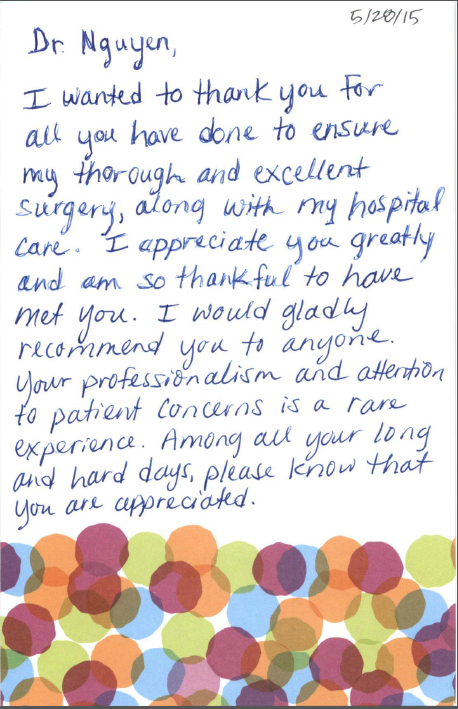 5/20/15
Dr. Nguyen,
I wanted to thank you for
all you have done to ensure
my thorough and excellent
surgery, along with my hospital
care. I appreciate you greatly
and am so thankful to have
met you. I would gladly
recommend you to anyone.
Your professionalism and attention
to patient concerns is a rare
experience. Among all your long
and hard days, please know that
you are appreciated.